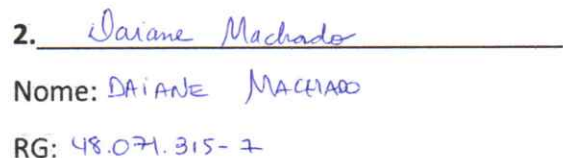 2. Daiane Machado
Nome: DAIANE MACHADO
RG: 48.071.315-7